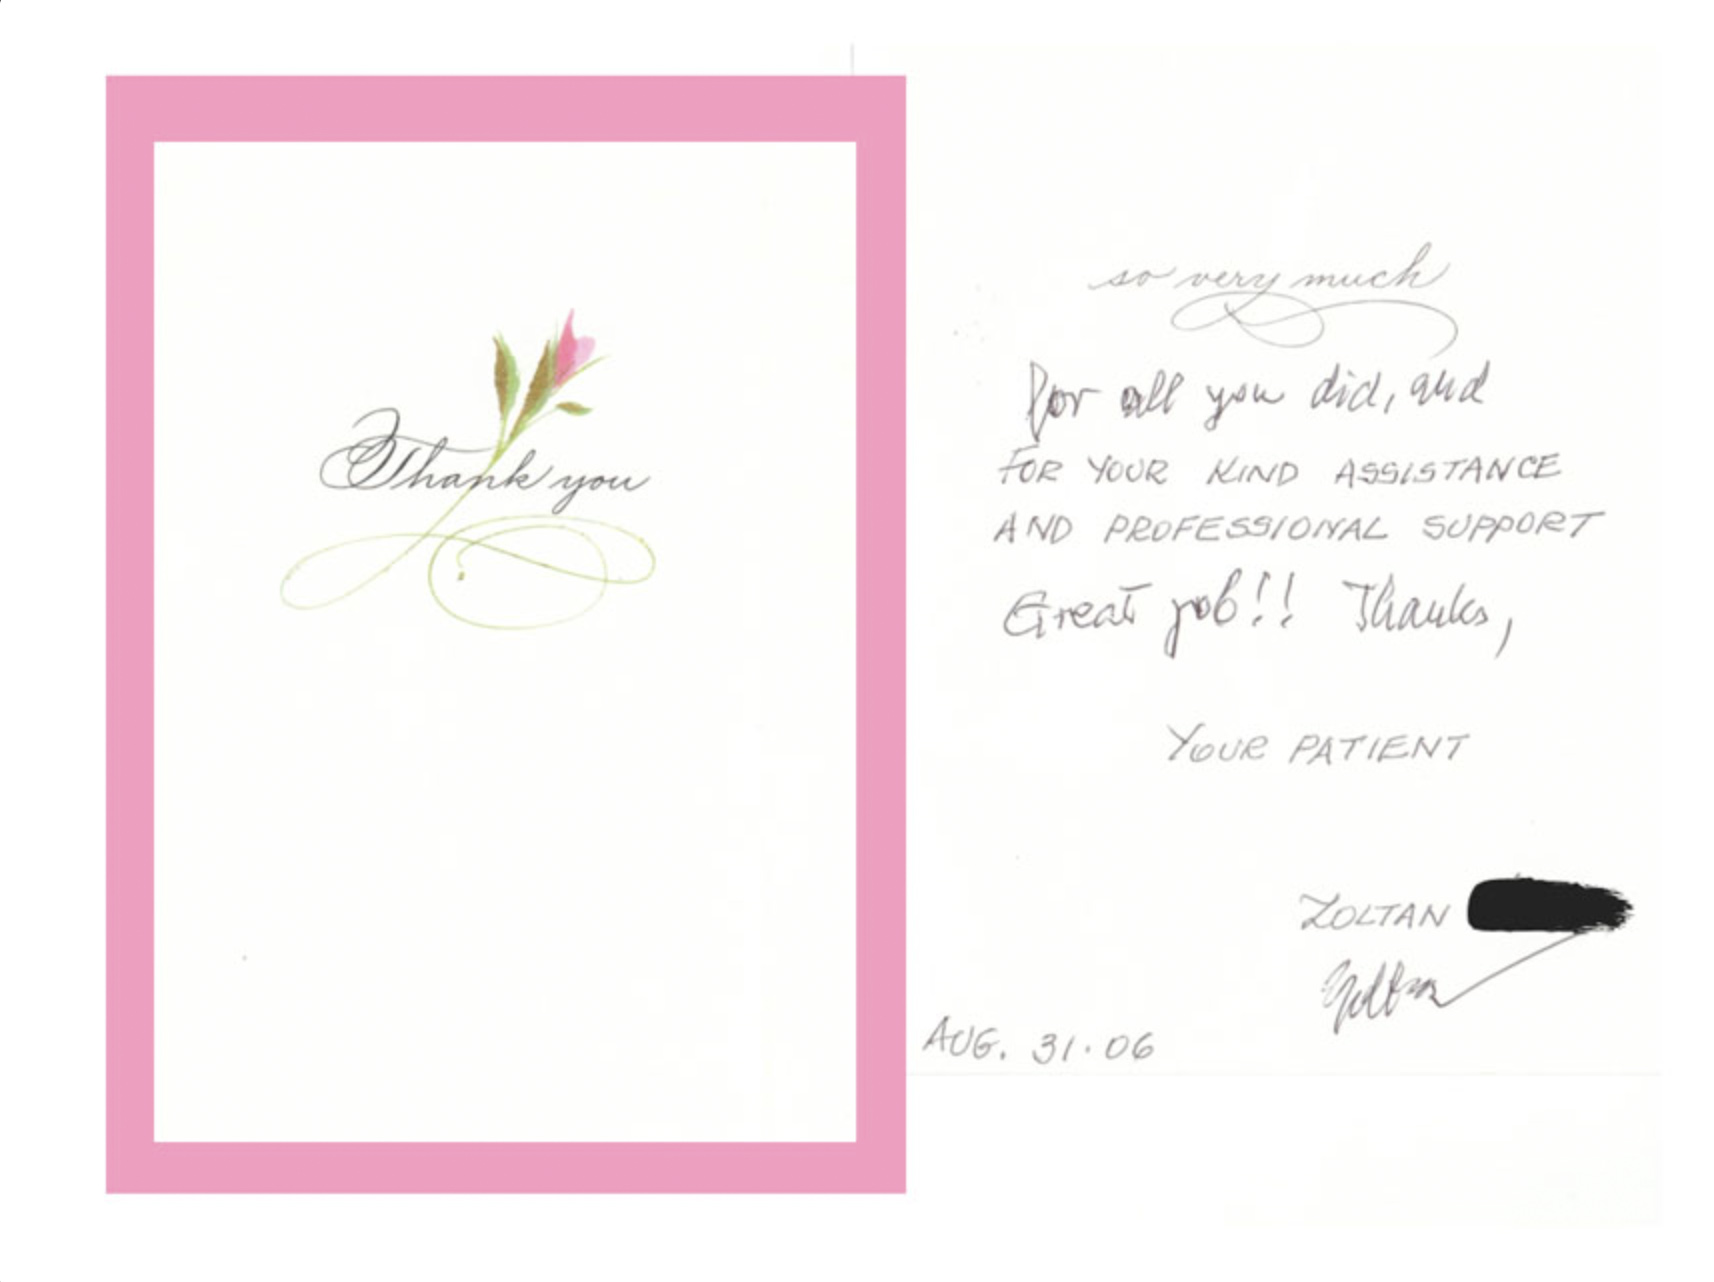 Thank you
so very much
For all you did, and
FOR YOUR KIND ASSISTANCE
AND PROFESSIONAL SUPPORT
Great job!! Thanks,
YOUR PATIENT
ZOLTAN
Zoltan
AUG. 31.06